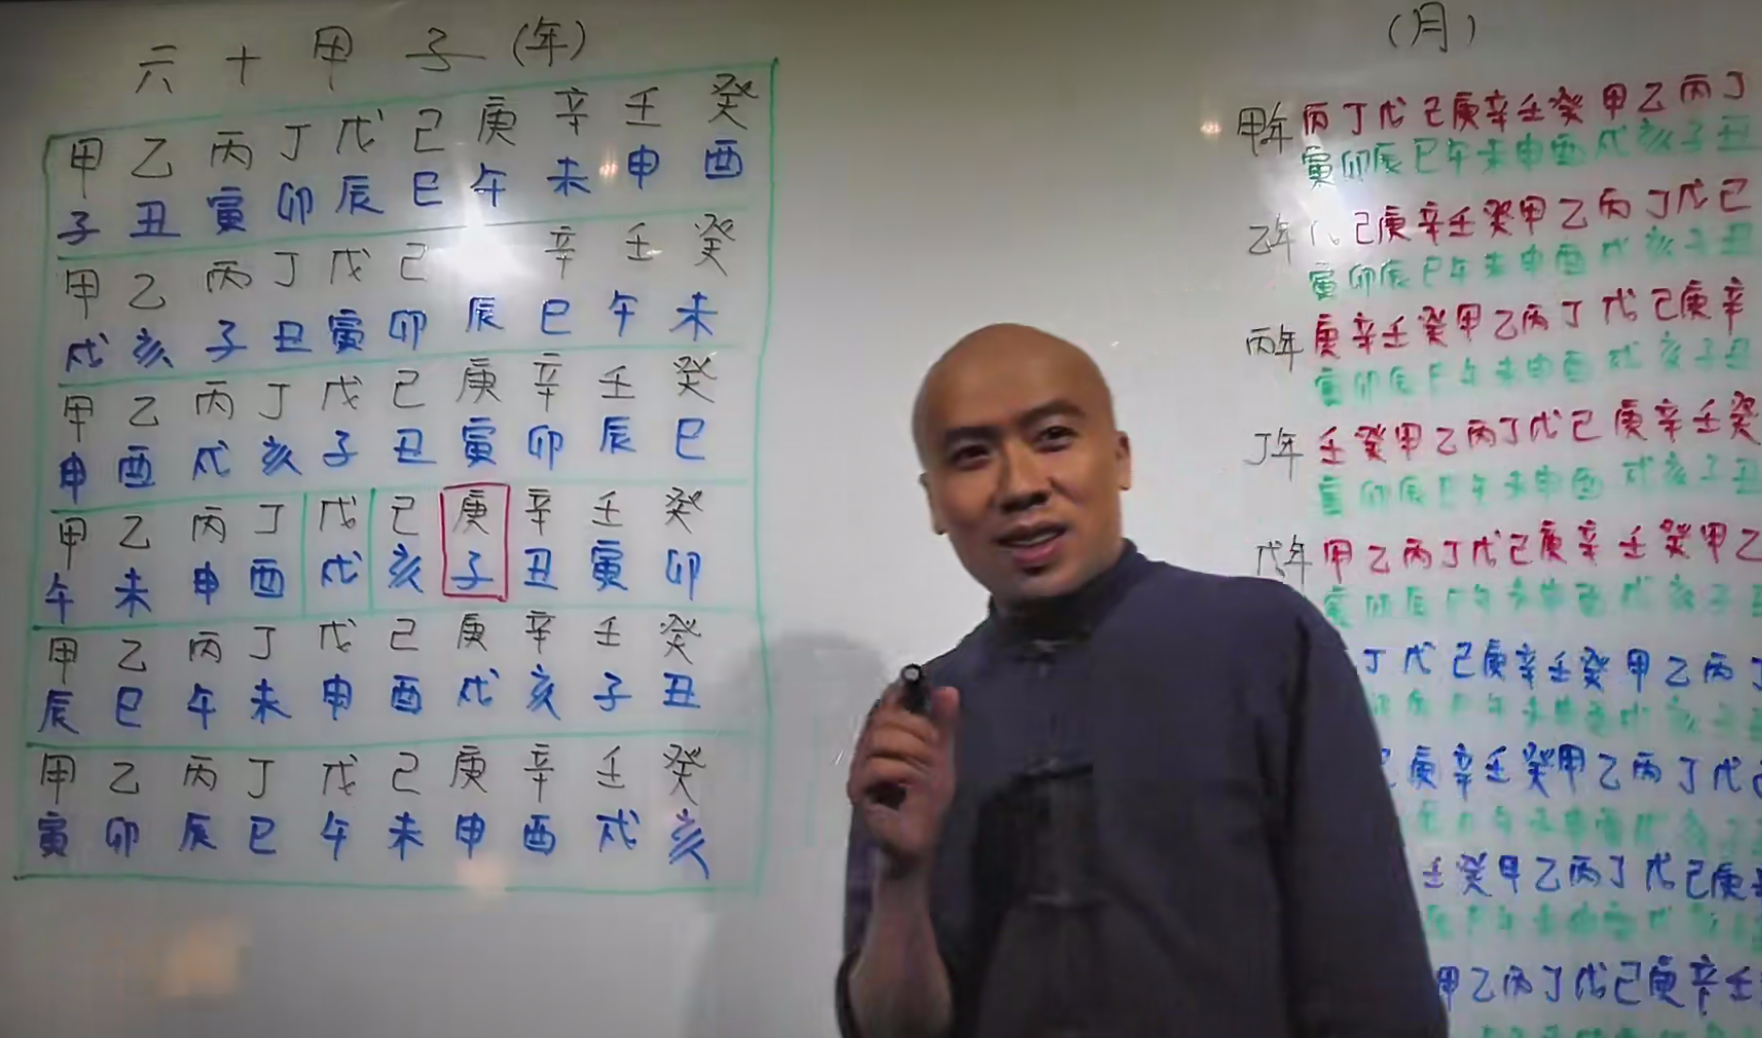 六十甲子(年)
甲乙丙丁戊己庚辛壬癸
子丑寅卯辰巳午未申酉
甲乙丙丁戊己辛壬癸
戌亥子丑寅卯辰巳午未
甲乙丙丁戊己庚辛壬癸
申酉戌亥子丑寅卯辰巳
甲乙丙丁戊己庚辛壬癸
午未申酉戌亥子丑寅卯
甲乙丙丁戊己庚辛壬癸
辰巳午未申酉戌亥子丑
甲乙丙丁戊己庚辛壬癸
寅卯辰巳午未申酉戌亥
(月)
甲年 丙丁戊己庚辛壬癸甲乙丙丁
寅卯辰巳午未申酉戌亥子丑
乙年 己庚辛壬癸甲乙丙丁戊己
寅卯辰巳午未申酉戌亥子丑
丙年 庚辛壬癸甲乙丙丁戊己庚辛
寅卯辰巳午未申酉戌亥子丑
丁年 壬癸甲乙丙丁戊己庚辛壬癸
寅卯辰巳午未申酉戌亥子丑
戊年 甲乙丙丁戊己庚辛壬癸甲乙
寅卯辰巳午未申酉戌亥子
丁戊己庚辛壬癸甲乙丙丁
卯辰巳午未申酉戌亥子丑
庚辛壬癸甲乙丙丁戊己
辰巳午未申酉戌亥
壬癸甲乙丙丁戊己庚辛
辰巳午未申酉戌
甲乙丙丁戊己庚辛壬